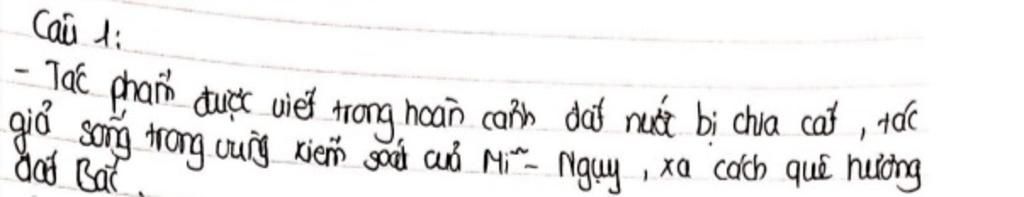 Câu 1:
- Tác phẩm được viết trong hoàn cảnh đất nước bị chia cắt, tác
giả sống trong vùng kiểm soát của Mĩ - Ngụy, xa cách quê hương
đất Bắc.